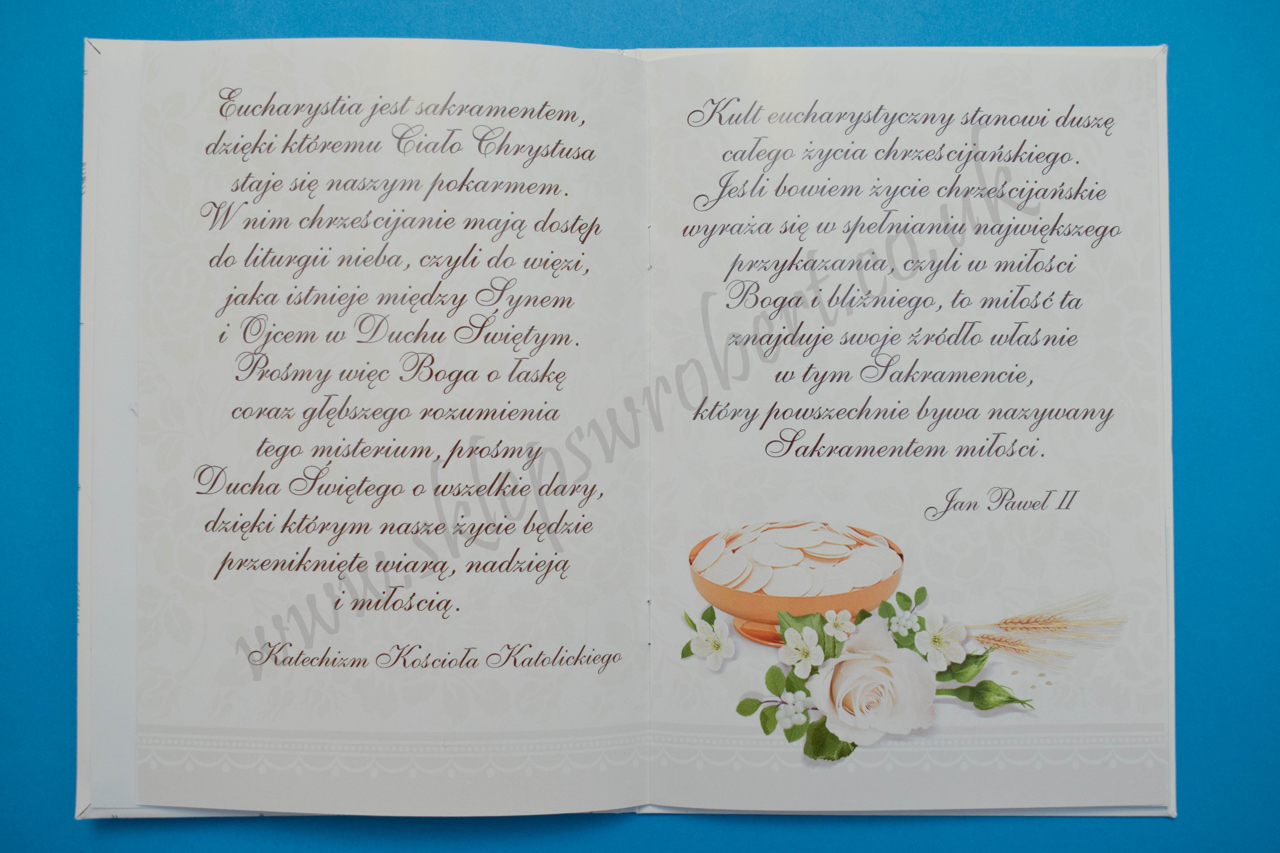 Eucharystia jest sakramentem,
dzięki któremu Ciało Chrystusa
staje się naszym pokarmem.
W nim chrześcijanie mają dostęp
do liturgii nieba, czyli do więzi,
jaka istnieje między Synem
i Ojcem w Duchu Świętym.
Prośmy więc Boga o łaskę
coraz głębszego rozumienia
tego misterium, prośmy
Ducha Świętego o wszelkie dary,
dzięki którym nasze życie będzie
przeniknięte wiarą, nadzieją
i miłością.
Katechizm Kościoła Katolickiego
Kult eucharystyczny stanowi duszę
całego życia chrześcijańskiego.
Jeśli bowiem życie chrześcijańskie
wyraża się w spełnianiu największego
przykazania, czyli w miłości
Boga i bliźniego, to miłość ta
znajduje swoje źródło właśnie
w tym Sakramencie,
który powszechnie bywa nazywany
Sakramentem miłości.
Jan Paweł II
www.sklepswrobert.co.uk